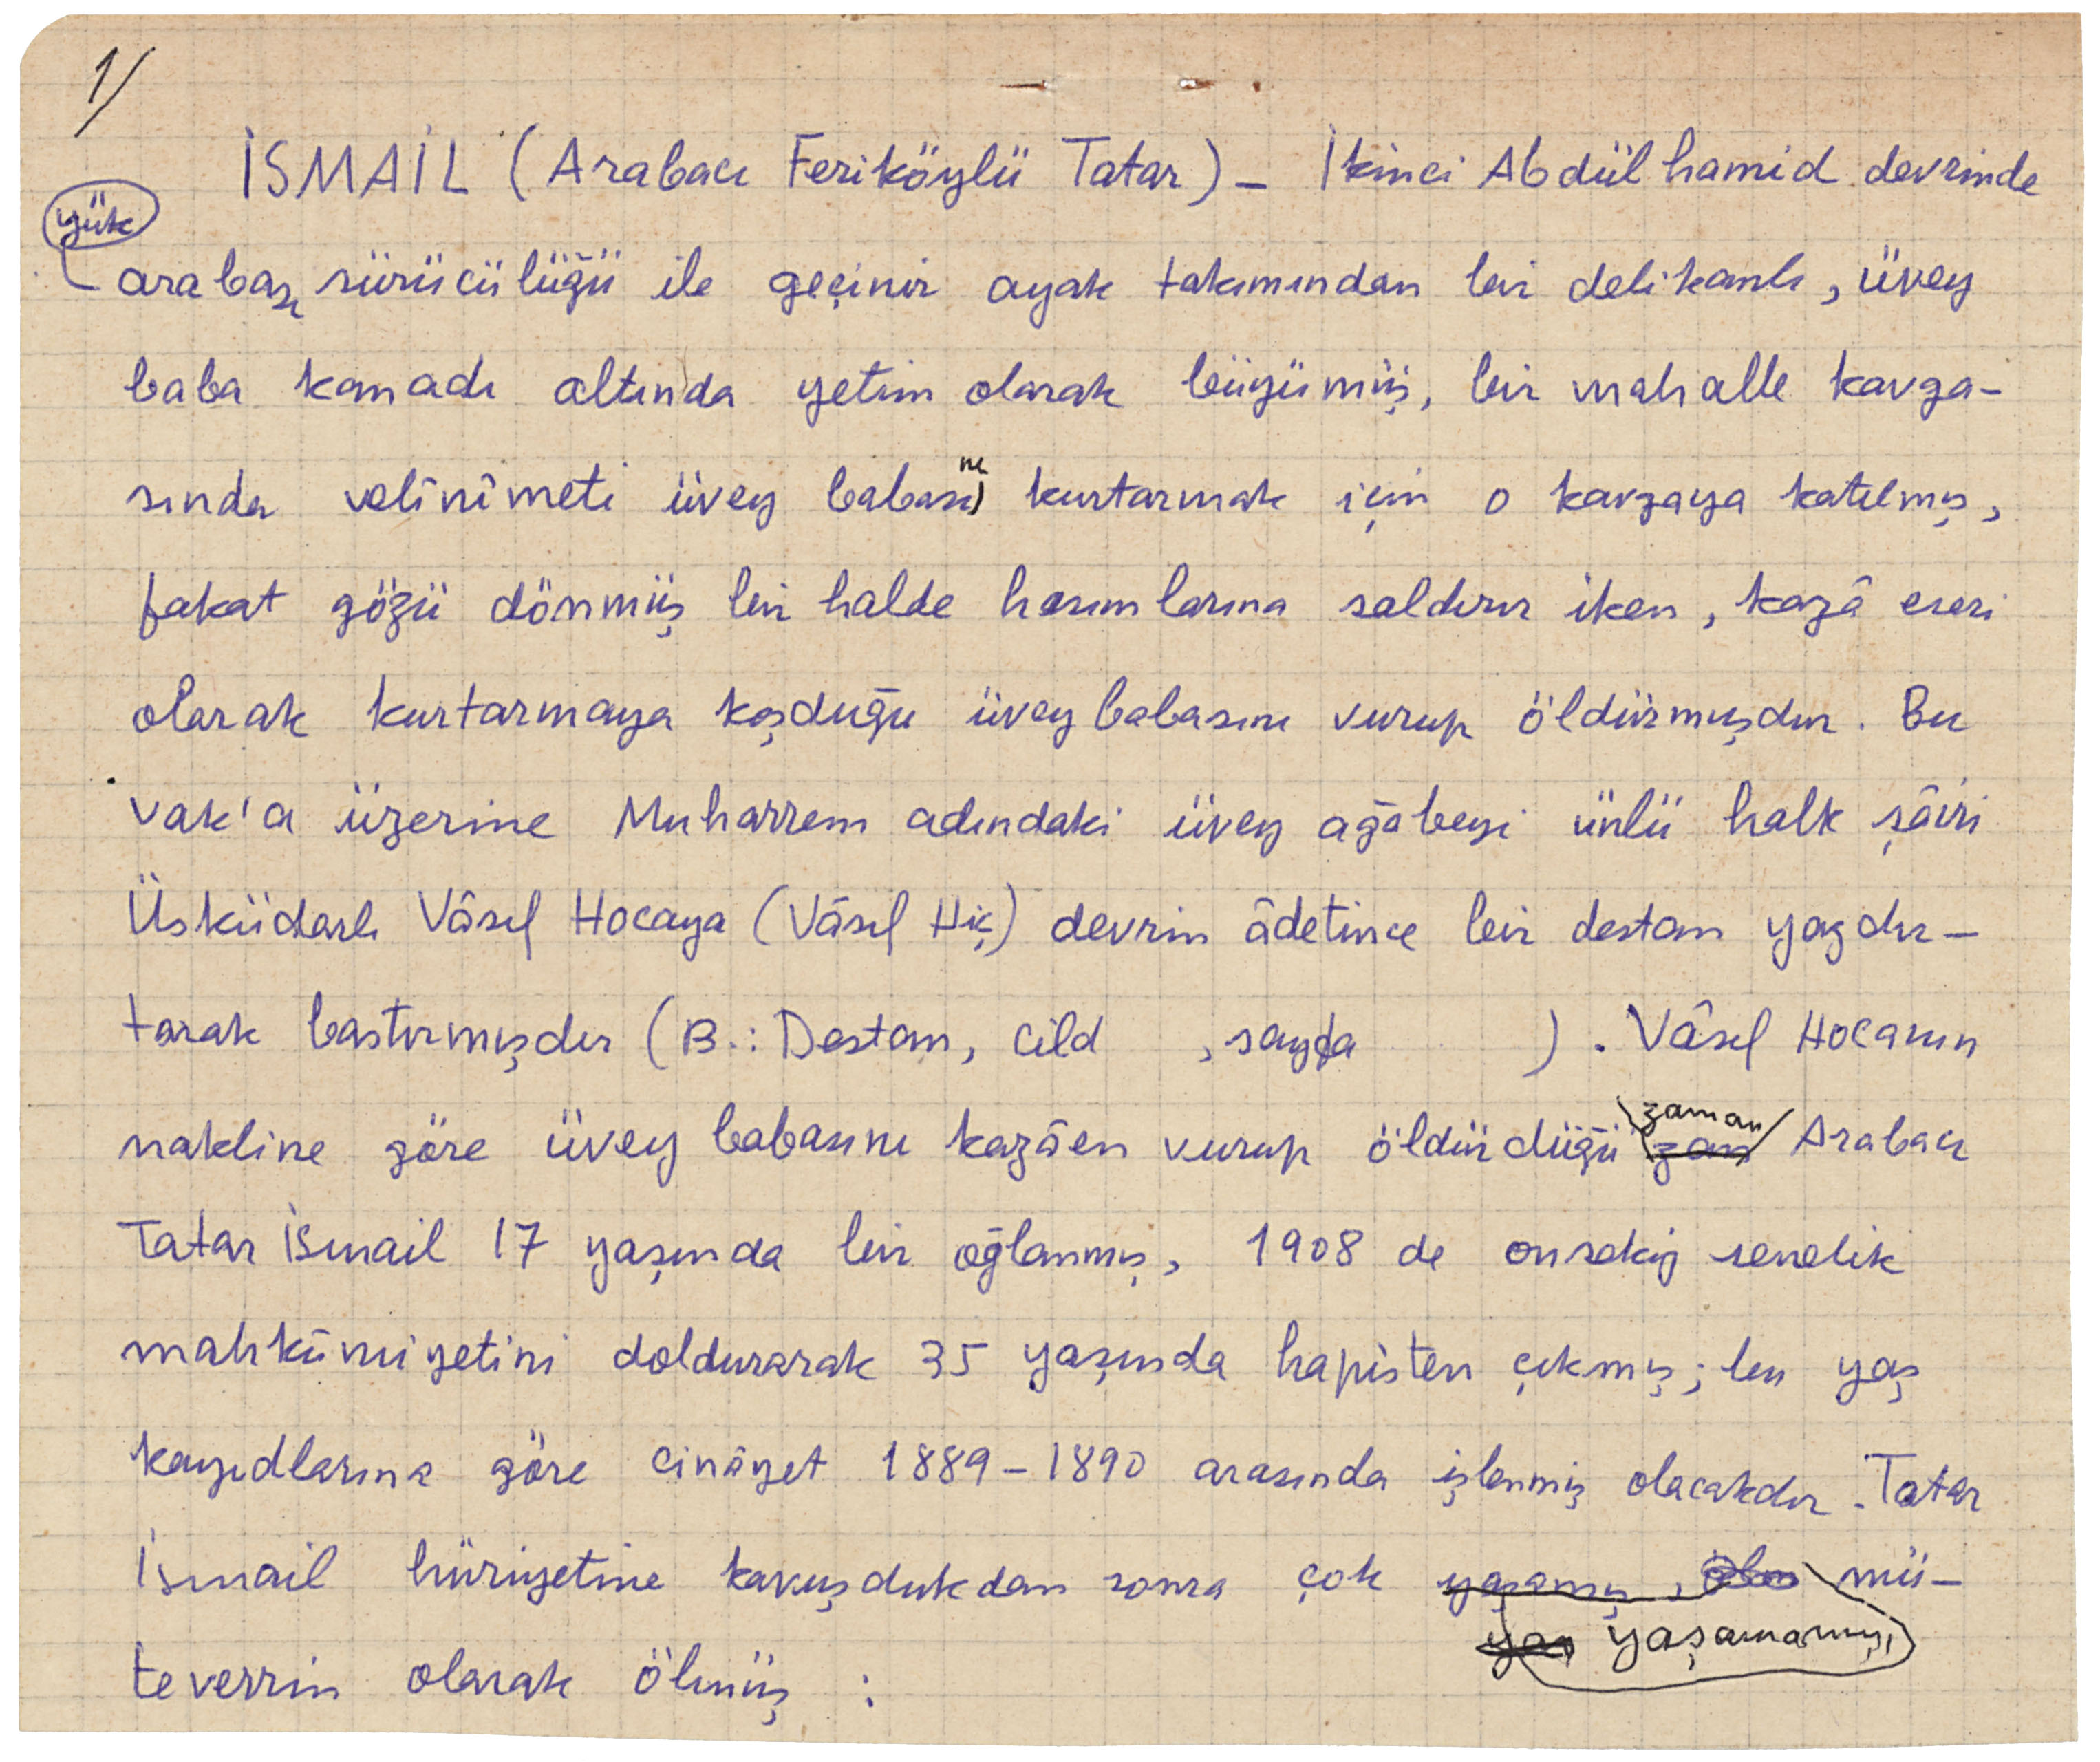 1/
İSMAİL (Arabacı Feriköylü Tatar) — İkinci Abdülhamid devrinde
yük
arabası sürücülüğü ile geçinir ayak takımından bir delikanlı, üvey
baba kanadı altında yetim olarak büyümüş, bir mahalle kavga-
sında velînîmeti üvey babasını kurtarmak için o kavgaya katılmış,
fakat gözü dönmüş bir halde hasımlarına saldırır iken, kazâ eseri
olarak kurtarmaya koşduğu üvey babasını vurup öldürmüşdür. Bu
vak'a üzerine Muharrem adındaki üvey ağabeyi ünlü halk şâiri
Üsküdarlı Vâsıf Hocaya (Vâsıf Hiç) devrin âdetince bir destan yazdır-
tarak bastırmışdır (B.: Destan, cild , sayfa ). Vâsıf Hocanın
nakline göre üvey babasını kazâen vurup öldürdüğü zaman Arabacı
Tatar İsmail 17 yaşında bir oğlanmış, 1908 de onsekiz senelik
mahkûmiyetini doldurarak 35 yaşında hapisten çıkmış; bu yaş
kayıdlarına göre cinâyet 1889-1890 arasında işlenmiş olacakdır. Tatar
İsmail hüriyetine kavuşdukdan sonra çok yaşamamış, mü-
teverrin olarak ölmüş :